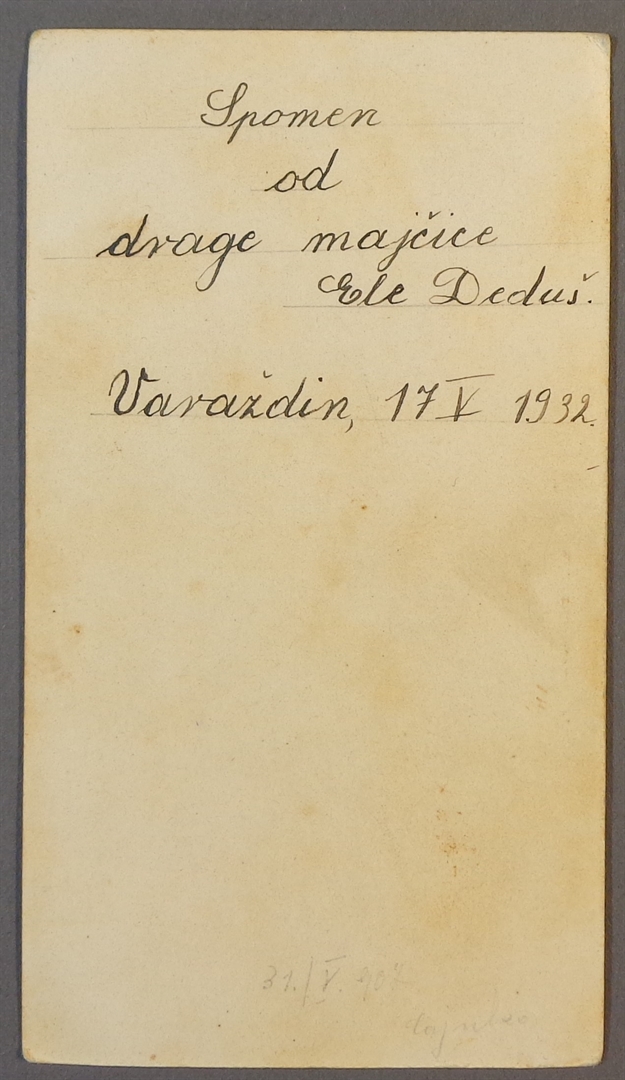 Spomen
od
drage majčice
Ele Deduš.
Varaždin, 17 V 1932.
31./V. 907